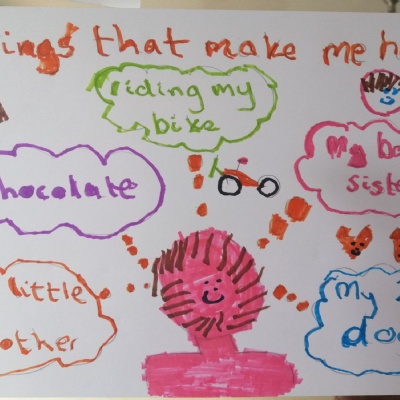 ings that make me h
riding my
bike
hocolate
My b
siste
little
other
My
do